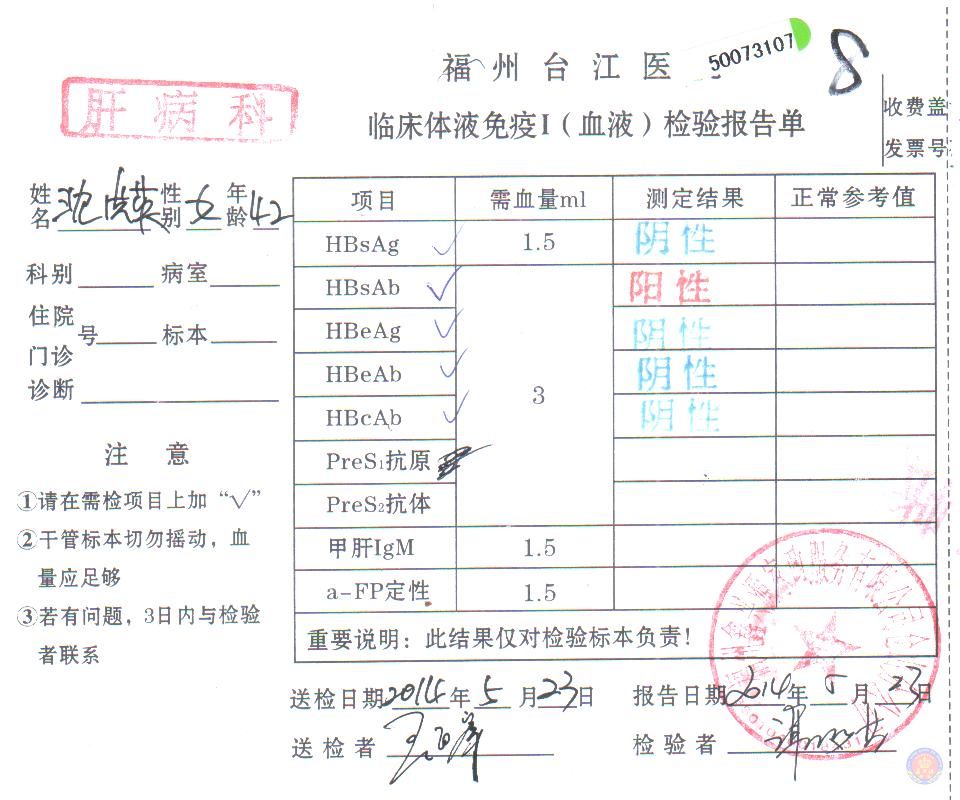 福州台江医
50073107
8
肝病科
临床体液免疫I（血液）检验报告单
收费盖
发票号
姓名 英 性别 女 年龄 42
科别 病室
住院
门诊 号 标本
诊断
注 意
①请在需检项目上加“√”
②干管标本切勿摇动，血
量应足够
③若有问题，3日内与检验
者联系
项目 需血量ml 测定结果 正常参考值
HBsAg √ 1.5 阴性
HBsAb √ 阳性
HBeAg √ 阴性
HBeAb √ 3 阴性
HBcAb √ 阴性
PreS₁抗原
PreS₂抗体
甲肝IgM 1.5
a-FP定性 1.5
重要说明：此结果仅对检验标本负责！
送检日期2014年5月23日 报告日期2014年5月23日
送检者 检验者